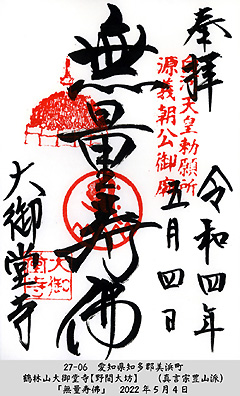 奉拝
白河天皇勅願所
源義朝公御廟
令和四年
五月四日
無量寿佛
大御堂寺
大御堂寺
27-06 愛知県知多郡美浜町
鶴林山大御堂寺【野間大坊】 (真言宗豊山派)
「無量寿佛」 2022年5月4日